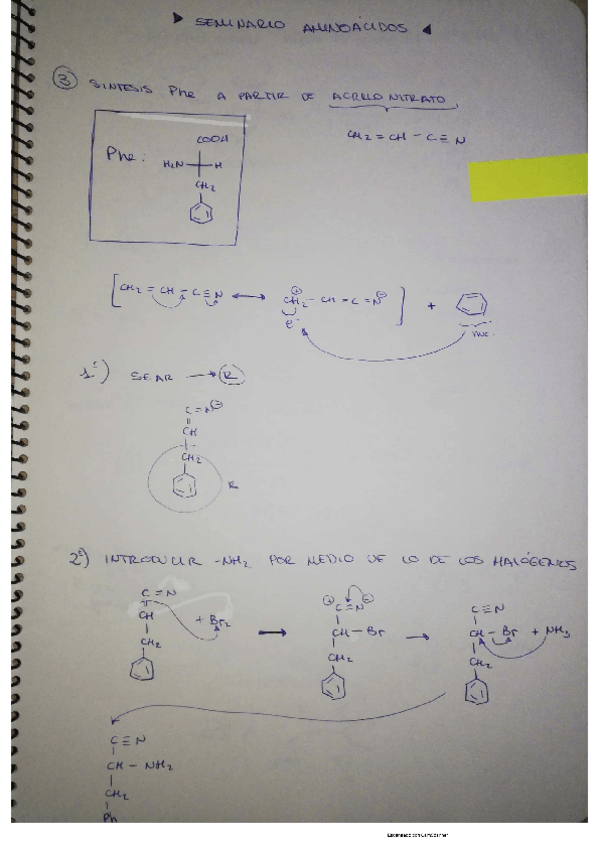 ▶ SEMINARIO AMINOÁCIDOS ◀
③ SINTESIS Phe A PARTIR DE ACRILONITRATO
CH2 = CH - C ≡ N
Phe:
COOH
H2N H
CH2
[CH2 = CH - C ≡ N ↔ ⊕CH2 - CH = C = N⊖] +
e-
Nuc.
1º) SEAR → R
C = N⊖
CH
CH2
R
2º) INTRODUCIR -NH2 POR MEDIO DE LO DE LOS HALÓGENOS
C = N
CH
CH2
+ Br2 →
⊕ ⊖
C = N
CH - Br
CH2
→
C ≡ N
CH - Br + NH3
CH2
C ≡ N
CH - NH2
CH2
Ph
Escaneado con CamScanner